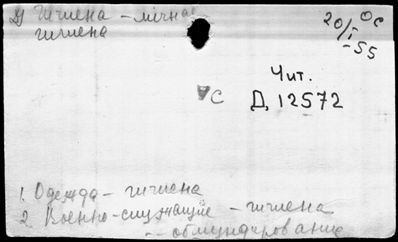 Гигиена - личная
гигиена
20/I -55
ОС
Чит.
Д, 12572
С
1. Одежда - гигиена
2. Военно-служащие - гигиена
-- обмундирование